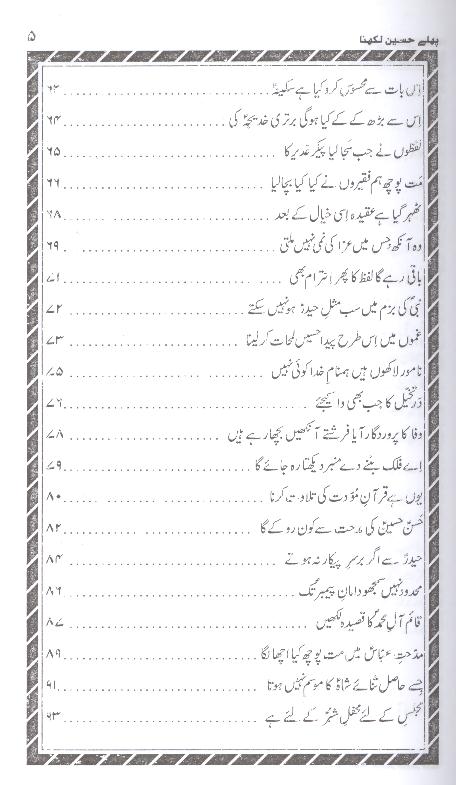 پہلے حسین لکھنا ۵
اِس بات سے محسوس کرو کیا ہے سکینہؑ ۶۳
اِس سے بڑھ کے کے کیا ہوگی برتری خدیجہؑ کی ۶۴
لفظوں نے جب سجا لیا پیکر غدیر کا ۶۵
مَت پوچھ ہم فقیروں نے کیا کیا بچا لیا ۶۶
ٹھہر گیا ہے عقیدہ اِسی خیال کے بعد ۶۸
وہ آنکھ جس میں عزا کی نمی نہیں ملتی ۶۹
باقی رہے گا لفظ کا پھر احترام بھی ۷۱
نبیؐ کی بزم میں سب مثلِ حیدرؑ ہو نہیں سکتے ۷۲
غموں میں اِس طرح پیدا حسیں لمحات کر لینا ۷۳
نامور لاکھوں ہیں ہمنامِ خدا کوئی نہیں ۷۵
دَر تخیّل کا جب بھی وا کیجئے ۷۶
وفا کا پروردگار آیا فرشتے آنکھیں بچھا رہے ہیں ۷۸
اے فلک بننے دے منبر دیکھتا رہ جائے گا ۷۹
یوں ہے قرآنِ مؤدت کی تلاوت کرنا ۸۰
حُسنِ حسینؑ کی مدحت سے کون روکے گا ۸۲
حیدرؑ سے اگر برسرِ پیکار نہ ہوتے ۸۴
محدود نہیں سمجھو دامانِ پیمبرؐ تک ۸۶
قائمِ آلِ محمدؐ کا قصیدہ لکھیں ۸۷
مدحتِ عباسؑ میں مت پوچھ کیا اچھا لگا ۸۹
جسے حاصل ثنائے شاہؑ کا موسم نہیں ہوتا ۹۱
مجلس کے لئے محفلِ شبّرؑ کے لئے ہے ۹۳